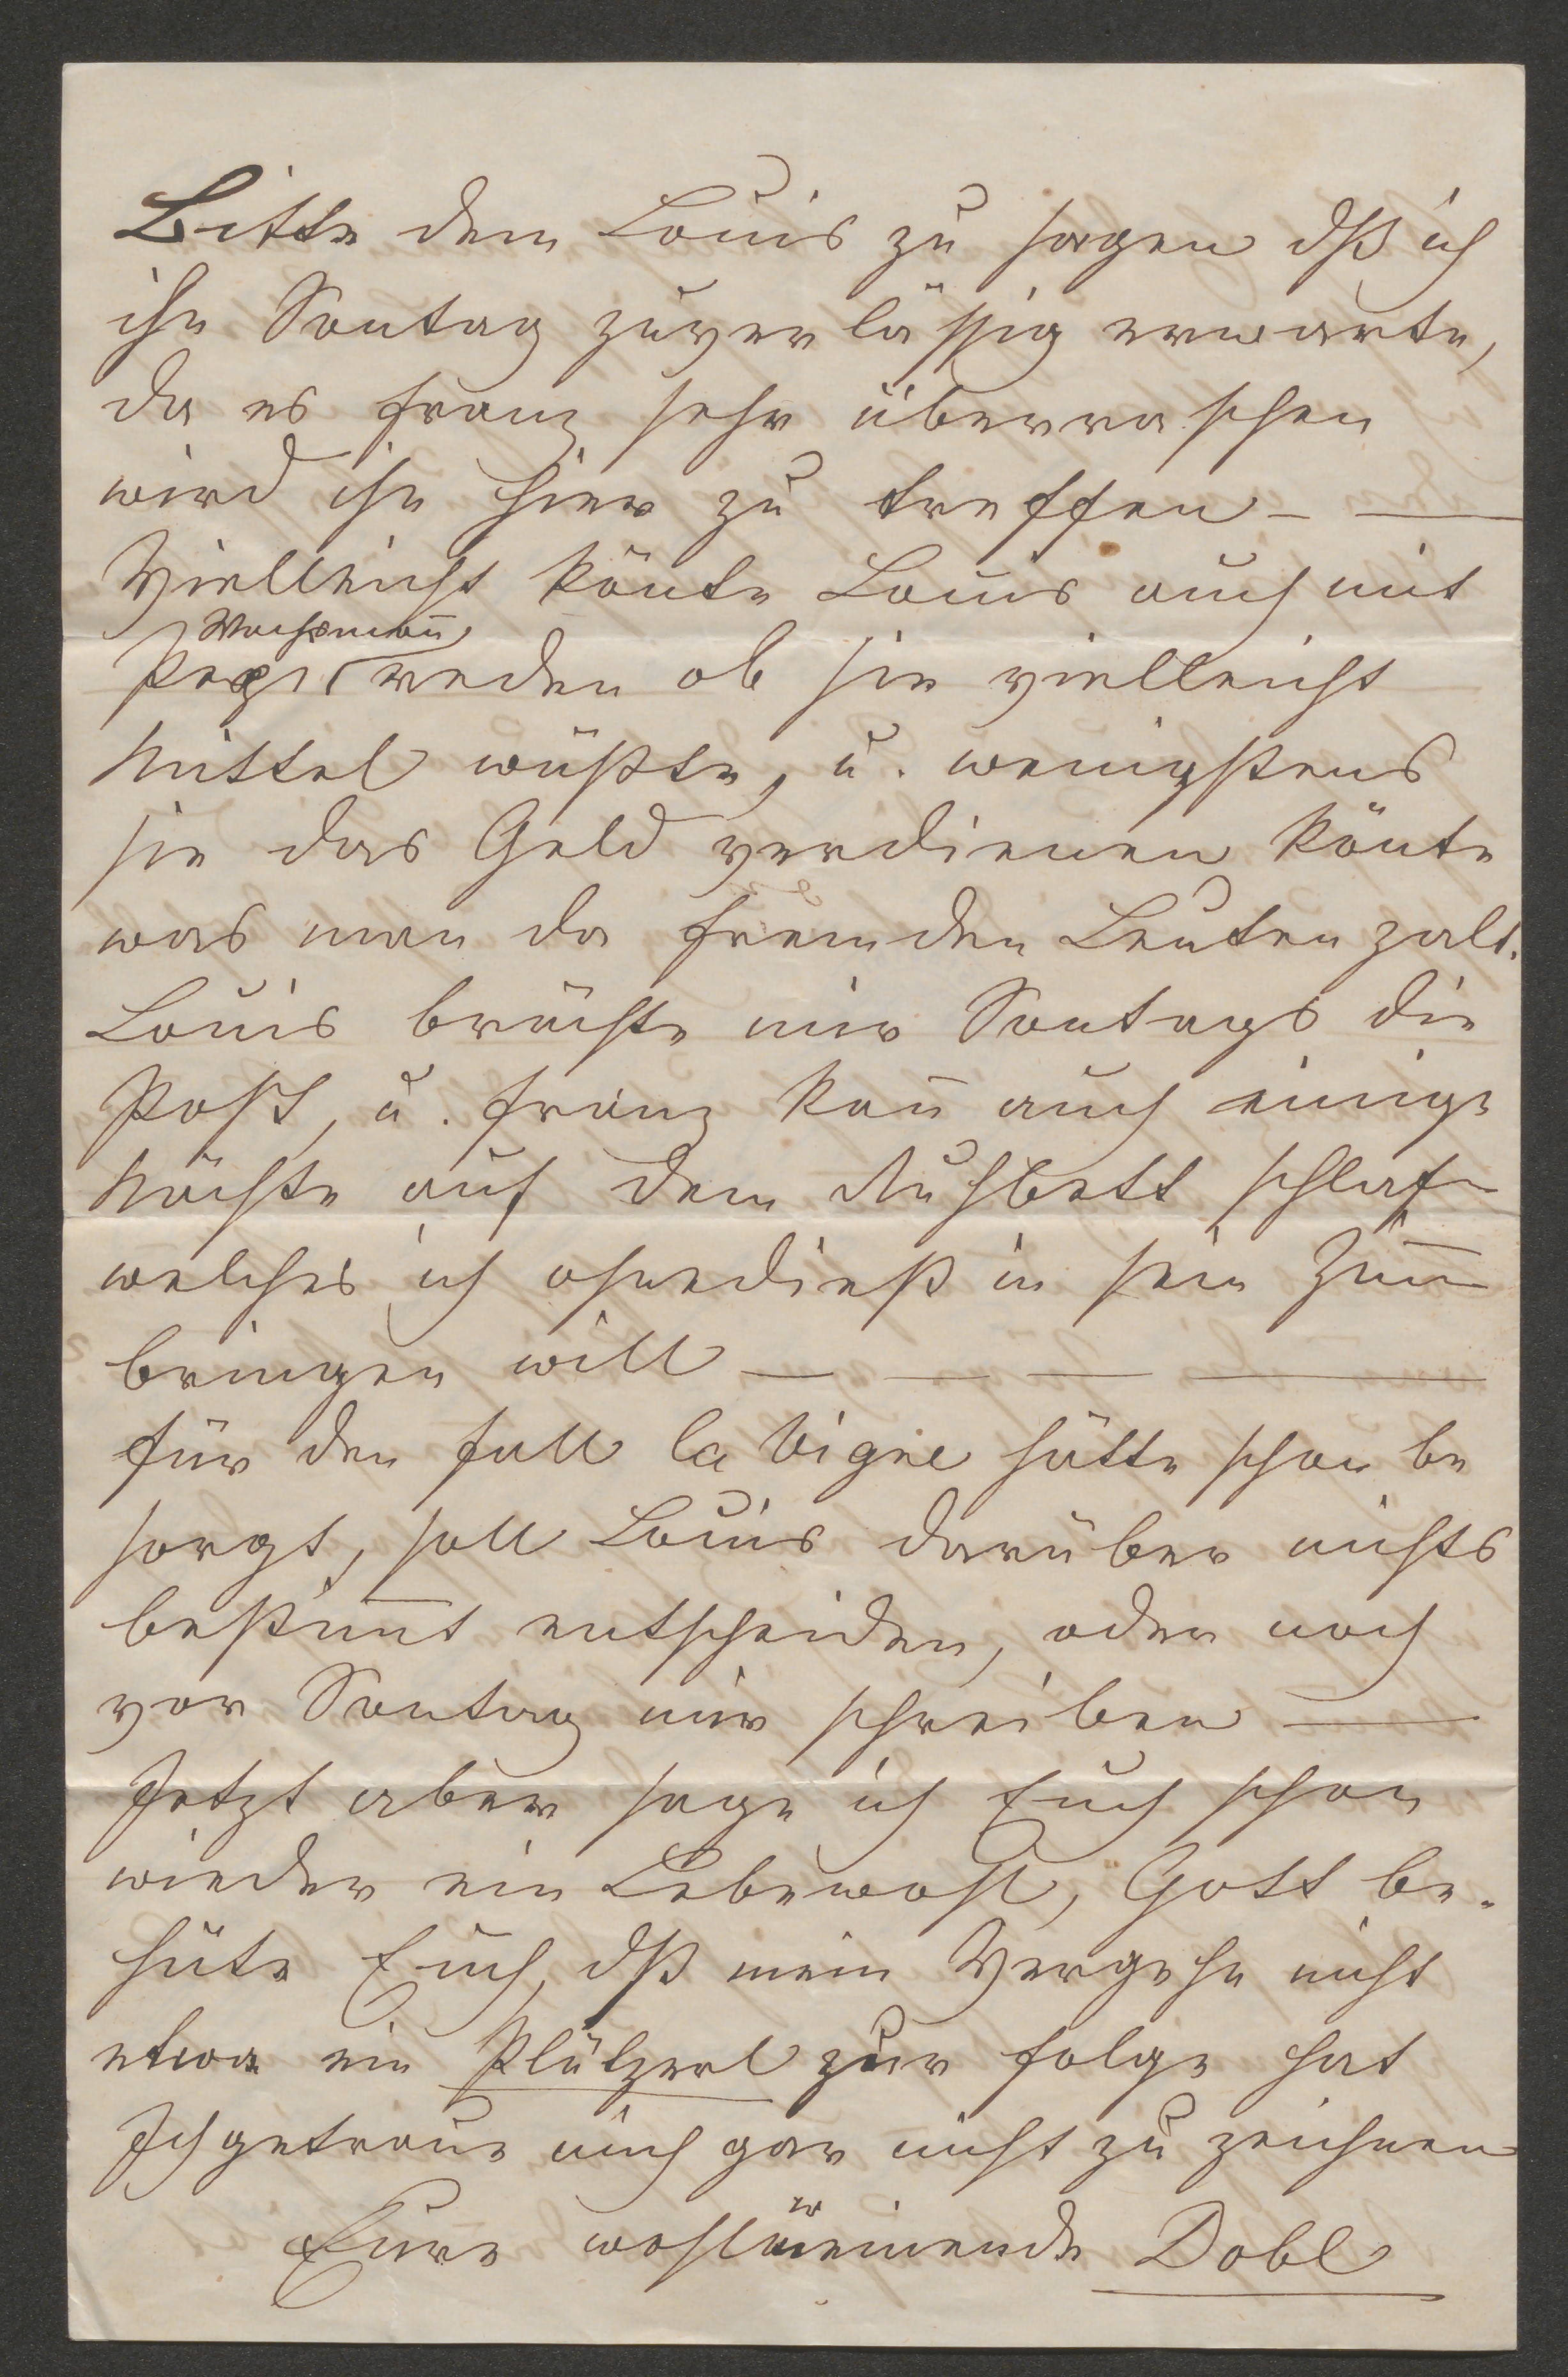 Bitte dem Louis zu sagen dß ich
ihn Sontag zuverlässig erwarte,
da es Franz sehr überraschen
wird ihn hier zu treffen – —
Vielleicht könte Louis auch mit
Wachsman̅
Pepi reden ob sie vielleicht
Mittel wüßte, u. wenigstens
sie das Geld verdienen könte
was man da fremden Leuten zalt.
Louis brächte mir Sontags die
Post, u. Franz kan̅ auch einige
Nächte auf dem Ruhbett schlafen
welches ich ohnedieß in sein Zim̅
bringen will — — — —
für den Fall la Vigne hätte schon be
sorgt, soll Louis darüber nichts
bestim̅t entscheiden, oder noch
vor Sontag mir schreiben —
Jetzt aber sage ich Euch schon
wieder ein Lebewohl, Gott be-
hüte Euch, dß mein Vergehn nicht
etwa ein Plützerl zur Folge hat
Ich getraue mich gar nicht zu zeichnen
Eure wohlmeinende Dobl